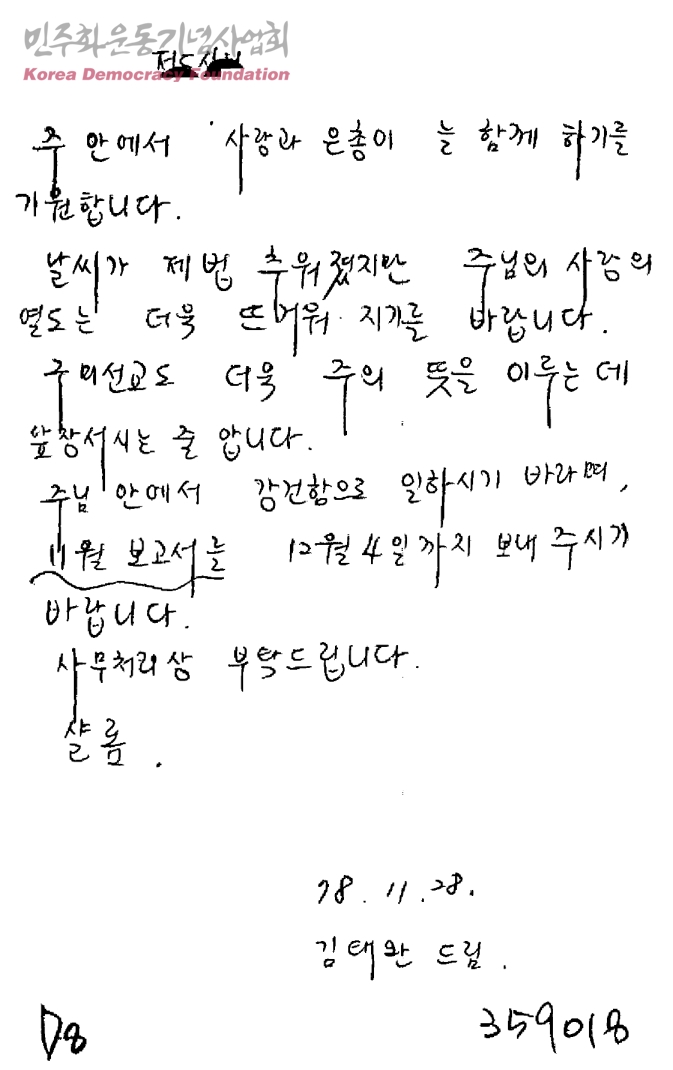 민주화운동기념사업회
Korea Democracy Foundation
주 안에서 사랑과 은총이 늘 함께 하기를
기원합니다.
날씨가 제법 추워졌지만 주님의 사람의
열도는 더욱 뜨거워 지기를 바랍니다.
구미선교도 더욱 주의 뜻을 이루는데
앞장서시는 줄 압니다.
주님 안에서 강건함으로 일하시기 바라며,
11월 보고서를 12월 4일까지 보내 주시기
바랍니다.
사무처리상 부탁드립니다.
샬롬.
78. 11. 28.
김태완 드림.
D8
359018